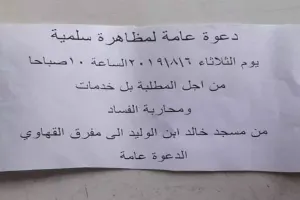 دعوة عامة لمظاهرة سلمية
يوم الثلاثاء ٢٠١٩/٨/٦ الساعة ١٠ صباحا
من اجل المطلبة بل خدمات
ومحاربة الفساد
من مسجد خالد ابن الوليد الى مفرق القهاوي
الدعوة عامة